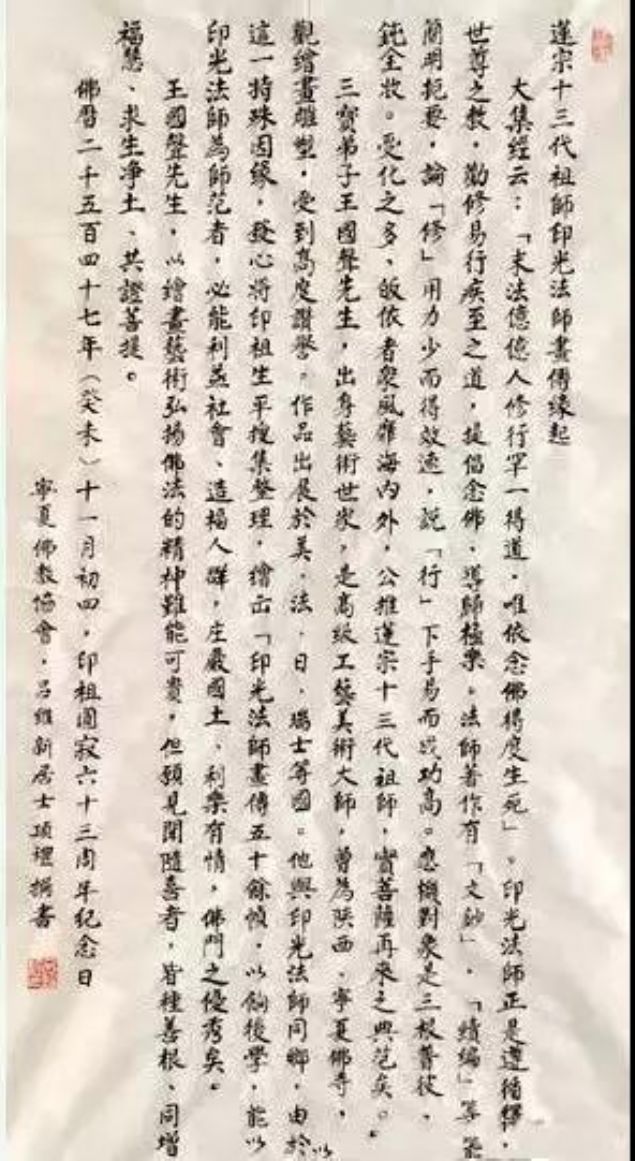 蓮宗十三代祖師印光法師畫傳緣起
大集經云：「末法億億人修行罕一得道，唯依念佛得度生死」。印光法師正是遵循釋，
世尊之教，勸修易行疾至之道，提倡念佛、導歸極樂。法師著作有「文鈔」，「續編」等
簡明扼要，論「修」用力少而得效速，說「行」下手易而成功高。應機對象是三根普被，
鈍全收。受化之多、皈依者眾風靡海內外，公推蓮宗十三代祖師，實菩薩再來之典范矣。
三寶弟子王國聲先生，出身藝術世家，是高級工藝美術大師，曾為陝西、寧夏佛寺，
觀繪畫雕塑，受到高度讚譽。作品出展於美，法，日，瑞士等國。他與印光法師同鄉，由於以
這一特殊因緣，發心將印祖生平搜集整理，繪出「印光法師畫傳五十餘幀，以餉後學，能以
印光法師為師范者，必能利益社會、造福人群，庄嚴國土、利樂有情，佛門之優秀矣。
王國聲先生，以繪畫藝術弘揚佛法的精神難能可貴，但願見聞隨喜者，皆種善根、同增
福慧、求生净土、共證菩提。
佛曆二千五百四十七年（癸未）十一月初四，印祖圓寂六十三周年紀念日
寧夏佛教協會，呂維新居士頂禮撰書